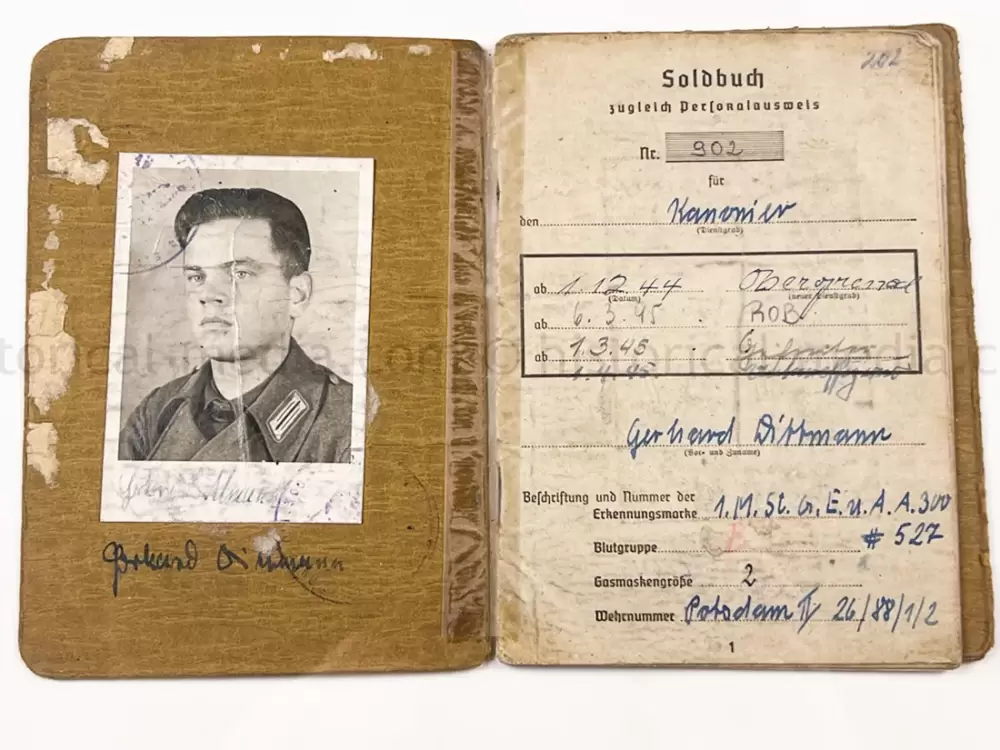 Gerhard Dittmann
202
Soldbuch
zugleich Personalausweis
Nr. 902
für
den Kanonier
(Dienstgrad)
ab 1.12.44 Obergrenad
(Datum) (neuer Dienstgrad)
ab 6.3.45 ROB
ab 1.3.45 Gefreiter
Gerhard Dittmann
(Vor- und Zuname)
Beschriftung und Nummer der
Erkennungsmarke 1.M.St.G.E.u.A.A.300
# 527
Blutgruppe
Gasmaskengröße 2
Wehrnummer Potsdam 26/88/1/2
1